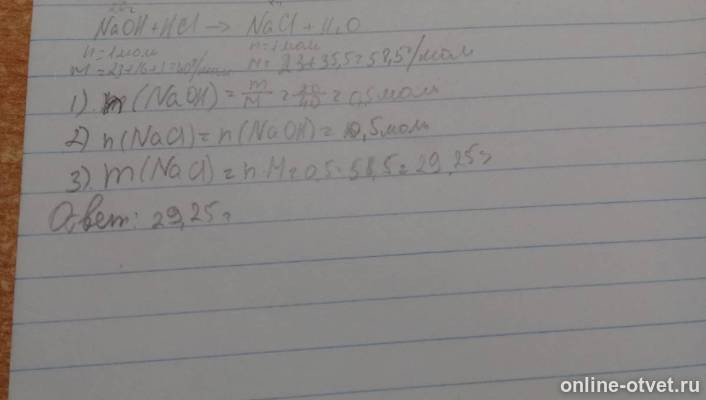 NaOH + HCl → NaCl + H₂O
n = 1 моль n = 1 моль
M = 23+16+1=40г/моль M = 23+35,5=58,5г/моль
1) n(NaOH) = m/M = 20/40 = 0,5 моль
2) n(NaCl) = n(NaOH) = 0,5 моль
3) m(NaCl) = n·M = 0,5·58,5 = 29,25г
Ответ: 29,25г
online-otvet.ru